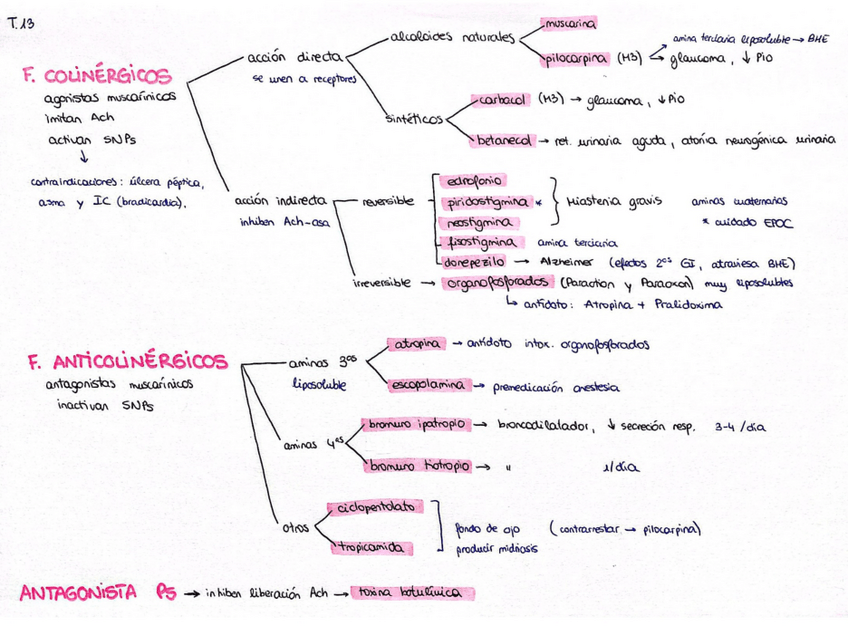 T.13
F. COLINÉRGICOS
agonistas muscarínicos
imitan Ach
activan SNPs
↓
contraindicaciones: úlcera péptica,
asma y IC (bradicardia).
acción directa
se unen a receptores
alcaloides naturales
muscarina
pilocarpina (M3) → amina terciaria liposoluble → BHE
→ glaucoma, ↓ PIO
sintéticos
carbacol (M3) → glaucoma, ↓ PIO
betanecol → ret. urinaria aguda, atonía neurogénica urinaria
acción indirecta
inhiben Ach-asa
reversible
edrofonio
piridostigmina *
neostigmina
Miastenia gravis
aminas cuaternarias
* cuidado EPOC
fisostigmina amina terciaria
donepezilo → Alzheimer (efectos 2os GI, atraviesa BHE)
irreversible → organofosforados (Paration y Paraoxon) muy liposolubles
↳ antídoto: Atropina + Pralidoxima
F. ANTICOLINÉRGICOS
antagonistas muscarínicos
inactivan SNPs
aminas 3as
liposoluble
atropina → antídoto intox. organofosforados
escopolamina → premedicación anestesia
aminas 4as
bromuro ipatropio → broncodilatador, ↓ secreción resp. 3-4 /día
bromuro tiotropio → " 1/día
otros
ciclopentolato
tropicamida
fondo de ojo (contrarrestar → pilocarpina)
producir midriosis
ANTAGONISTA PS → inhiben liberación Ach → toxina botulínica